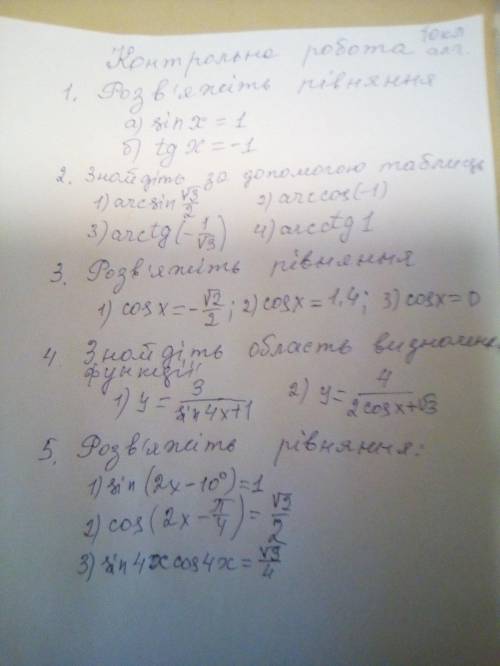 Контрольна робота 10 кл алг.
1. Розв'яжіть рівняння
а) sin x = 1
б) tg x = -1
2. Знайдіть за допомогою таблиць
1) arcsin √3/2 2) arccos(-1)
3) arctg(-1/√3) 4) arcctg 1
3. Розв'яжіть рівняння
1) cos x = -√2/2; 2) cos x = 1,4; 3) cos x = 0
4. Знайдіть область визначен.
функції
1) y = 3/(sin4x+1) 2) y = 4/(2cosx+√3)
5. Розв'яжіть рівняння:
1) sin(2x-10°)=1
2) cos(2x - π/4) = √3/2
3) sin4x cos4x = √3/4